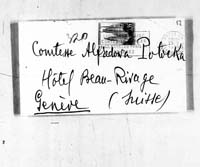 Comtesse Alfredowa Potocka
Hôtel Beau-Rivage
Genève (Suisse)